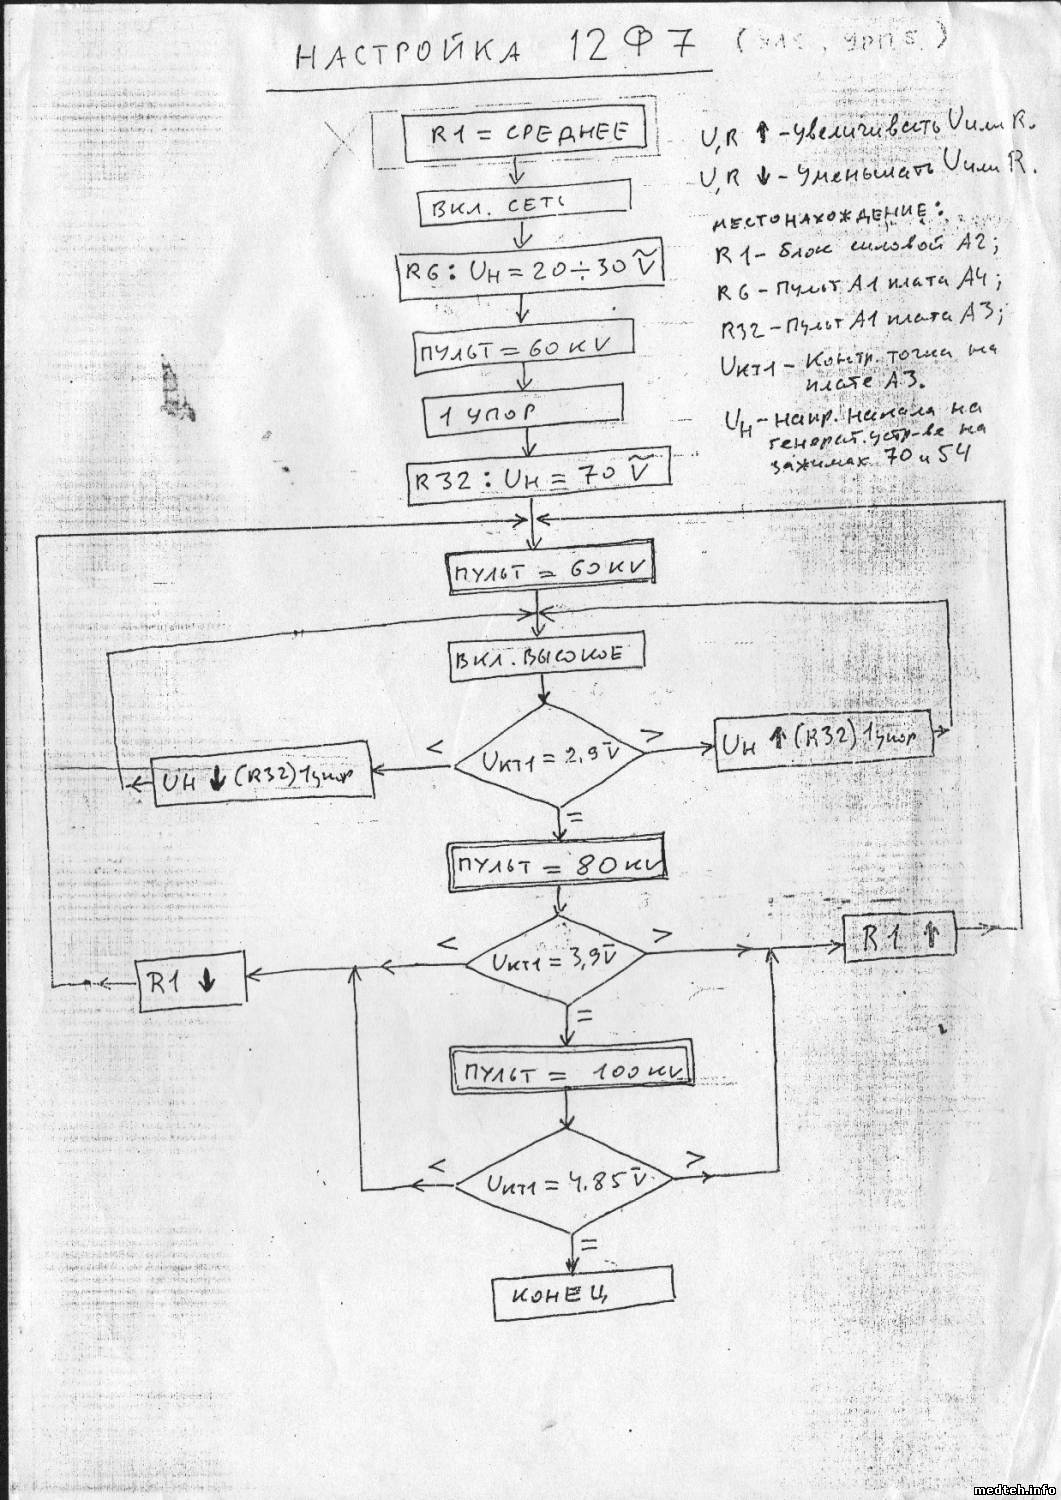 НАСТРОЙКА 12Ф7
R1 = СРЕДНЕЕ
ВКЛ. СЕТЬ
R6 : Uн = 20÷30 Ṽ
ПУЛЬТ = 60 KV
1 УПОР
R32 : Uн = 70 Ṽ
U,R ↑ - Увеличивать U или R.
U,R ↓ - Уменьшать U или R.
МЕСТОНАХОЖДЕНИЕ:
R1 - Блок силовой А2;
R6 - Пульт А1 плата А4;
R32 - Пульт А1 плата А3;
Uкт1 - Контр. точка на
плате А3.
Uн - напр. накала на
генерат. устр-ве на
зажимах 70 и 54
ПУЛЬТ = 60 KV
ВКЛ. ВЫСОКОЕ
< Uкт1 = 2,9 V̄ >
Uн ↓ (R32) 1 упор
Uн ↑ (R32) 1 упор
=
ПУЛЬТ = 80 KV
< Uкт1 = 3,9 V̄ >
R1 ↓
R1 ↑
=
ПУЛЬТ = 100 KV
< Uкт1 = 4.85 V̄ >
=
КОНЕЦ
medteh.info